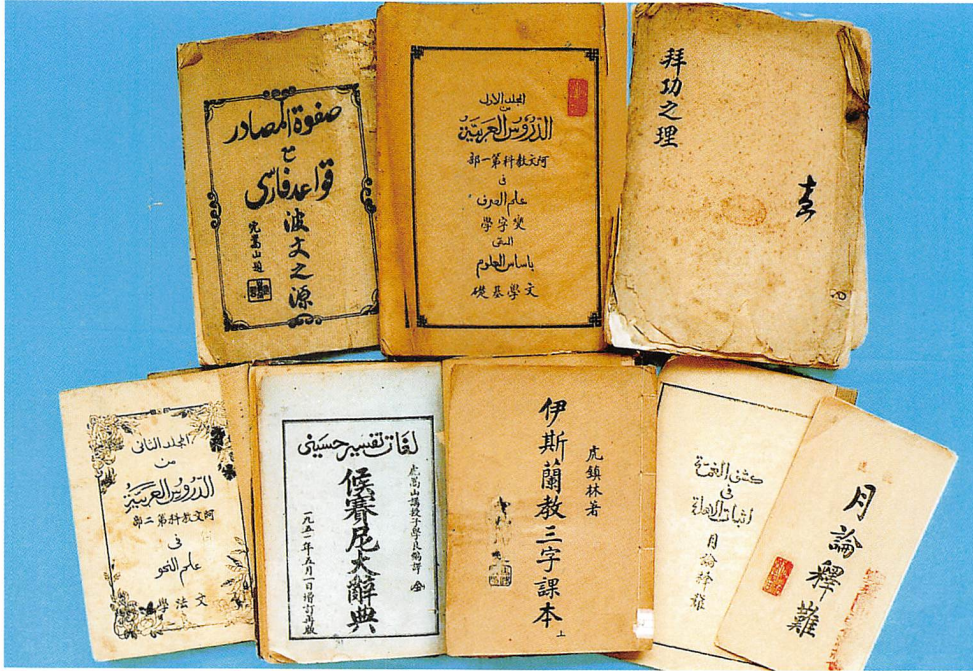 صفوة المصادر
قواعد فارسی
波文之源
虎嵩山題
المجلد الاول
من
الدروس العربية
部一第科教文阿
فى
علم الصرف
學字變
المسمى
باساس العلوم
礎基學文
拜功之理
المجلد الثانى
من
الدروس العربية
部二第科教文阿
فى
علم النحو
學法文
لغات تفسير حسينى
虎嵩山講授子學良編譯
侯賽尼大辭典
一九五一年五月一日增訂再版
虎鎮林著
伊斯蘭教三字課本
上
كشف الغمة
فى
اثبات الاهلة
月論釋難
月論釋難